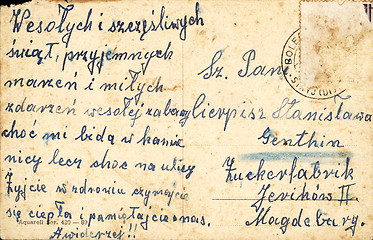 Wesołych i szczęśliwych
świąt, przyjemnych
marzeń i miłych
zdarzeń wesołej zabawy
choć mi bidą w kamie
nicy lecz choc na ulicy
Żyjcie w zdrowiu czymajcie
się ciepła i pamiętajcie o nas.
Aquarell Ser. 420
Sz. Pani
Cierpisz Stanisława
Genthin
Zuckerfabrik
Jerichów II
Magdeburg.